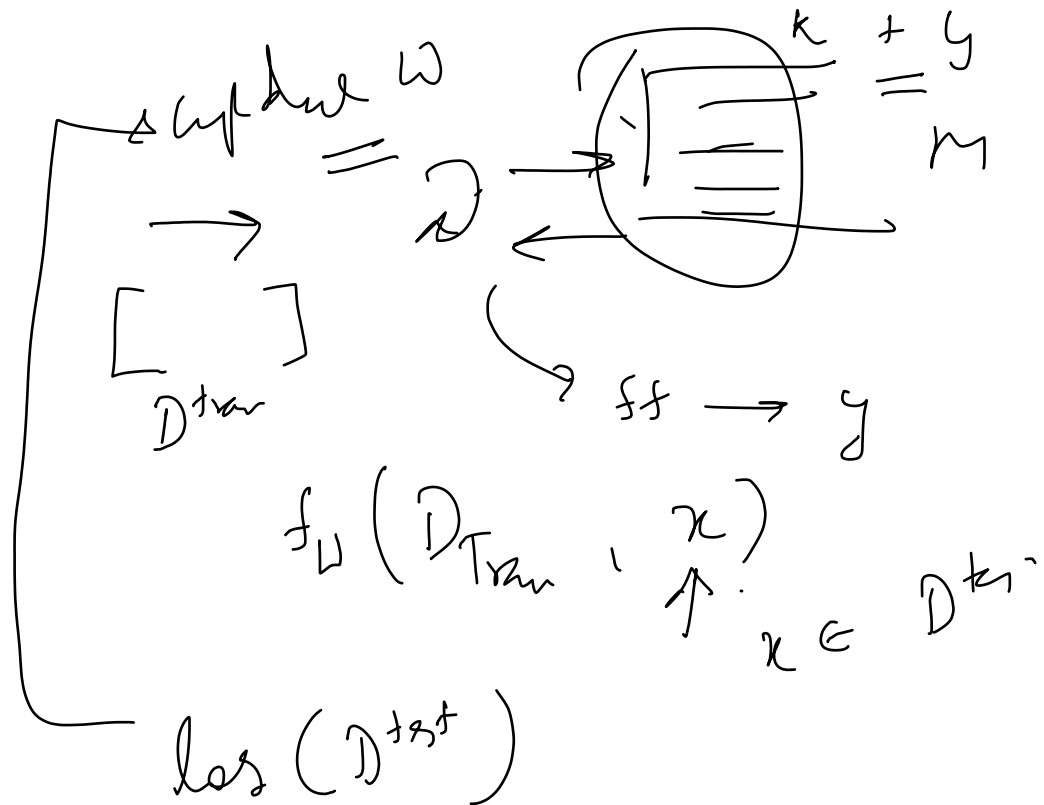 k + y
update W
M
D^tran
ff → y
f_W (D_Tran, x)
x ∈ D^tes
los (D^test)